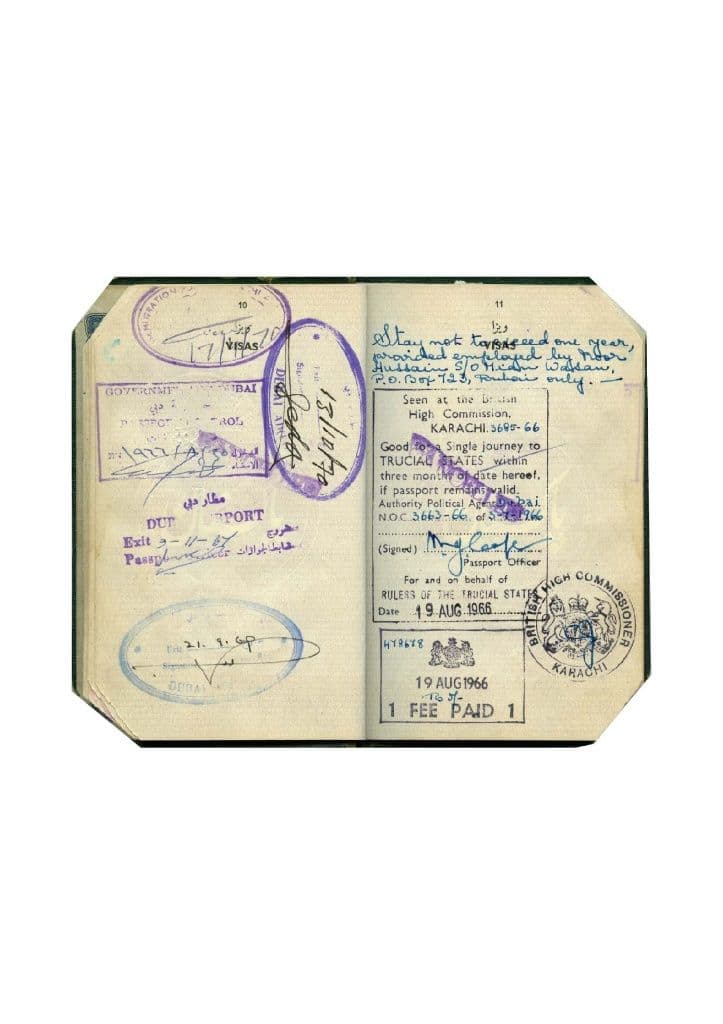 10
ويزا
VISAS
17/1/70
GOVERNMENT DUBAI
مطار دبي
DUB RPORT
Exit 9-11-67
خروج
Passp
ضابط جوازات
Exit 21.9.69
DUBAI
Exit
DUBAI AIR
15/10/70
11
ويزا
VISAS
Stay not to exceed one year,
provided employed by Noor
Hussain S/O Miam
P.O. Box 723, Dubai only. —
Seen at the British
High Commission,
KARACHI. 3685-66
Good for a Single journey to
TRUCIAL STATES within
three months of date hereof,
if passport remains valid.
Authority Political Agent Dubai.
N.O.C. 3663-66 of 5-7-1966
(Signed)
Passport Officer
For and on behalf of
RULERS OF THE TRUCIAL STATES
Date 19 AUG 1966
BRITISH HIGH COMMISSIONER
KARACHI
478678
19 AUG 1966
1 FEE PAID 1